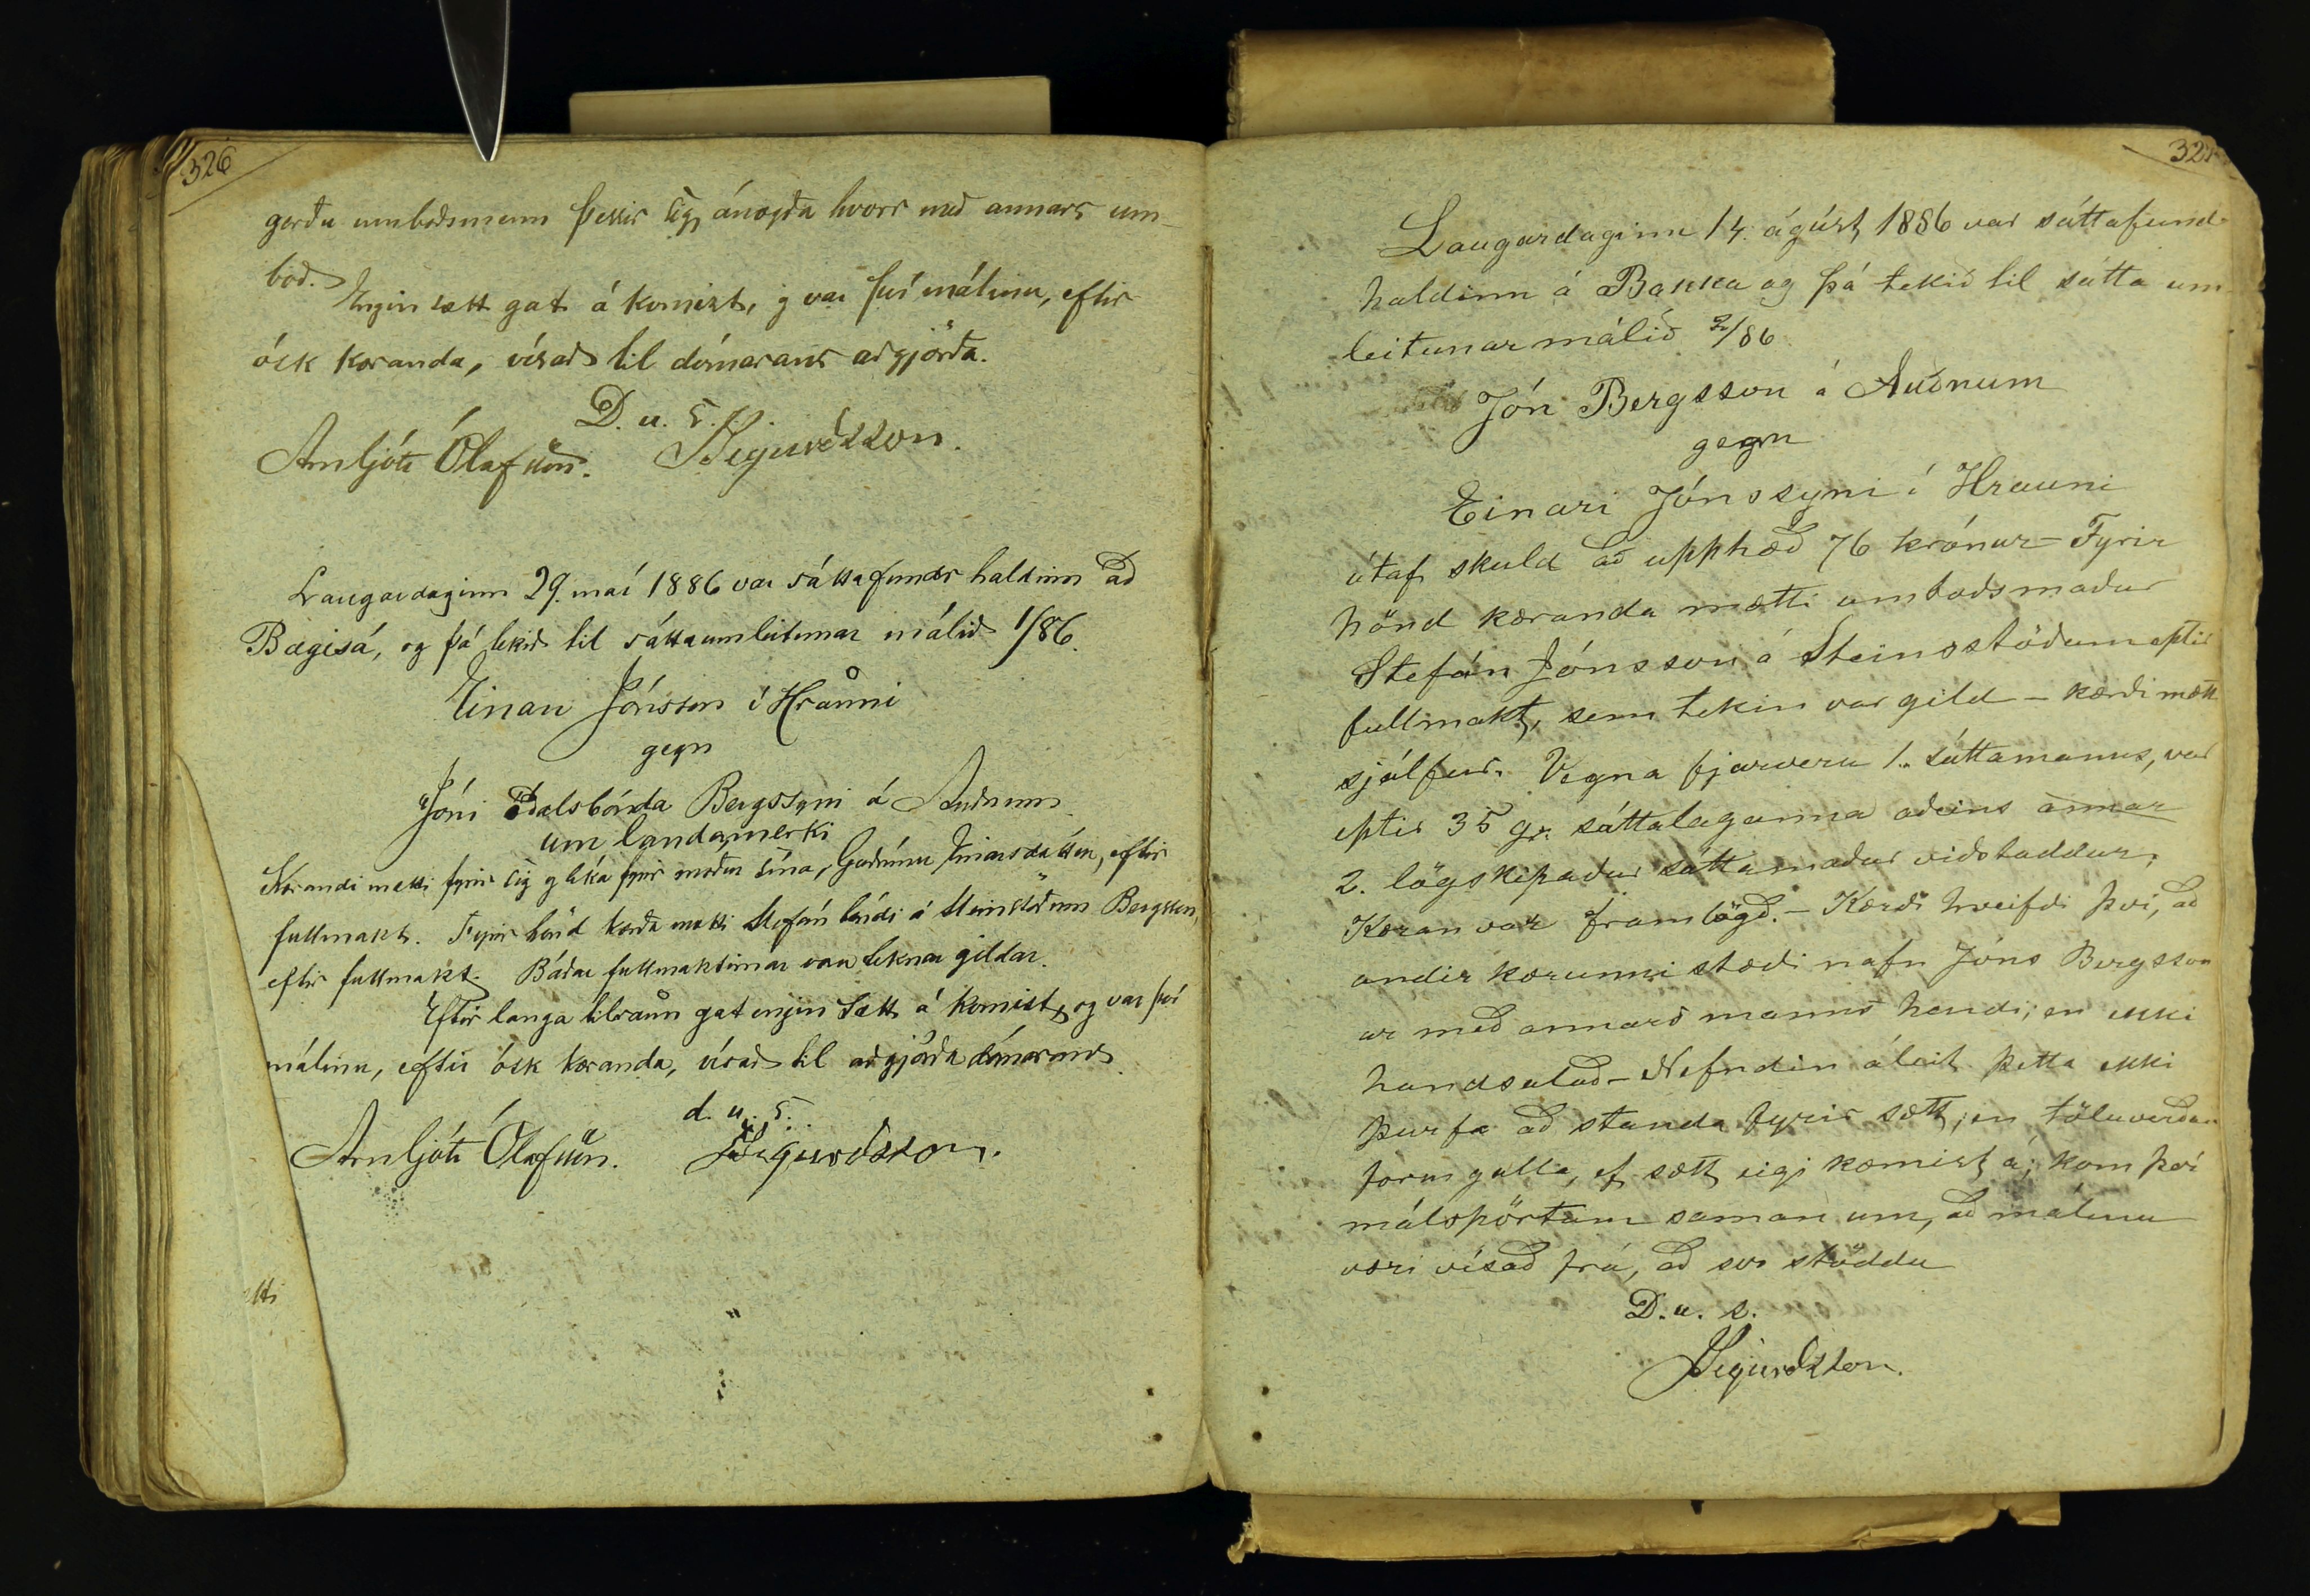 326
gerðu umboðsmenn þessir sig ánægða hvorr með annars um-
boð.
Engin sætt gat á komizt, og var því málinu, eftir
ósk kæranda, vísað til dómarans aðgjörða.
D. u. s.
Arnljótr Ólafsson. SSigurðsson.
Laugardaginn 29. maí 1886 var sáttafundr haldinn að
Bægisá, og þá tekið til sáttaumleitunar málið 1/86.
Einarr Jónsson í Hrauni
gegn
Jóni óðalsbónda Bergssyni á Auðnum
um landamerki
Kærandi mætti fyrir sig og líka fyrir móður sína, Guðrúnu Einarsdóttur, eftir
fullmakt. Fyrir hönd kærða mætti Stefán bóndi á Steinstöðum Bergsson,
eftir fullmakt. Báðar fullmaktirnar vóru teknar gildar.
Eftir langa tilraun gat engin sætt á komizt, og var því
málinu, eftir ósk kæranda, vísað til aðgjörða dómarans
d. u. s.
Arnljótr Ólafsson. SSigurðsson.
ætti
327
Laugardaginn 14. ágúst 1886 var sáttafund
haldinn á Bakka og þá tekið til sátta um
leitunar málið 2/86
Jón Bergsson á Auðnum
gegn
Einari Jónssyni í Hrauni
útaf skuld að upphæð 76 krónur – Fyrir
hönd kæranda mætti umboðsmaður
Stefán Jónsson á Steinsstöðum eptir
fullmakt, sem tekin var gild – kærði mætt
sjálfur. Vegna fjarveru 1. sáttamanns, var
eptir 35 gr. sáttalaganna aðeins annar
2. lögskipaður sáttamaður viðstaddur.
Kæran var framlögð. – Kærði hreifði því, að
undir kærunni stæði nafn Jóns Bergsson
ar með annars manns hendi; en ekki
handsalað – Nefndin áleit þetta ekki
þurfa að standa fyrir sætt; en töluverðan
formgalla, ef sætt eigi kæmist á; kom því
málspörtum saman um, að málinu
væri vísað frá, að svo stöddu
D. u. s.
SSigurðsson.